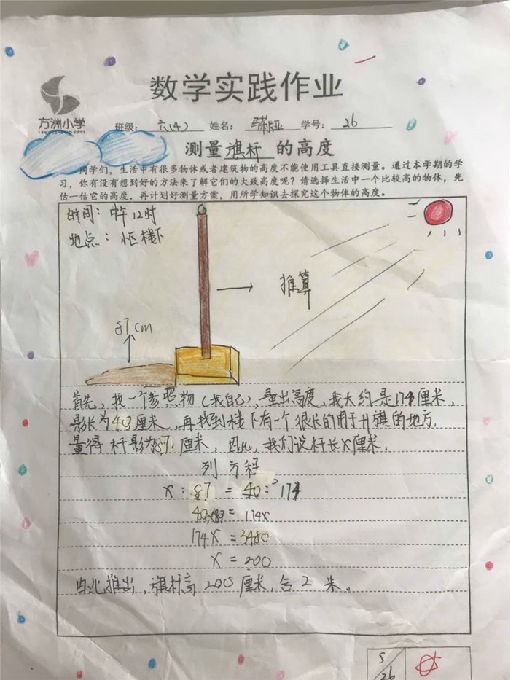 数学实践作业
方洲小学
班级: 六(4) 姓名: 学号: 26
测量 旗杆 的高度
同学们,生活中有很多物体或者建筑物的高度不能使用工具直接测量。通过本学期的学
习,你有没有想到好的方法来了解它们的大致高度呢?请选择生活中一个比较高的物体,先
估一估它的高度,再计划好测量方案,用所学知识去探究这个物体的高度。
时间: 中午12时
地点: 小区楼下
推算
87cm
首先,找一个参照物(我自己),量出高度,我大约是174厘米,
影长为40厘米,再找到楼下有一个很长的用于升旗的地方,
量得 杆影为87厘米,因此,我们设杆长X厘米,
列方程
X:87 = 40:174
= 174X
174X = 3480
X = 200
由此推出,旗杆高200厘米,合2米。
5
26